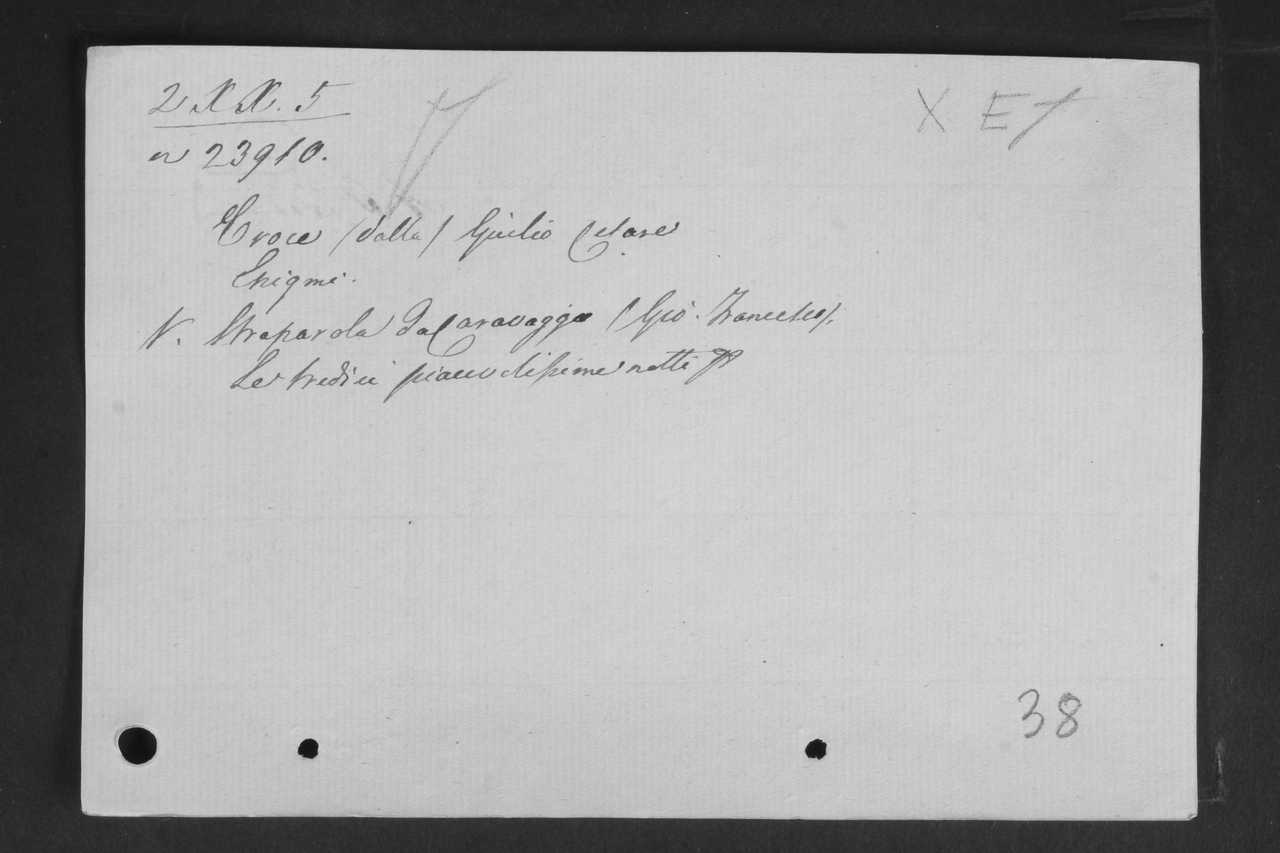 2 X X. 5
X E†
n 23910.
Croce (dalla) Giulio Cesare
Enigmi.
V. Straparola da Caravaggio (Gio. Francesco).
Le tredici piacevolissime notti
38